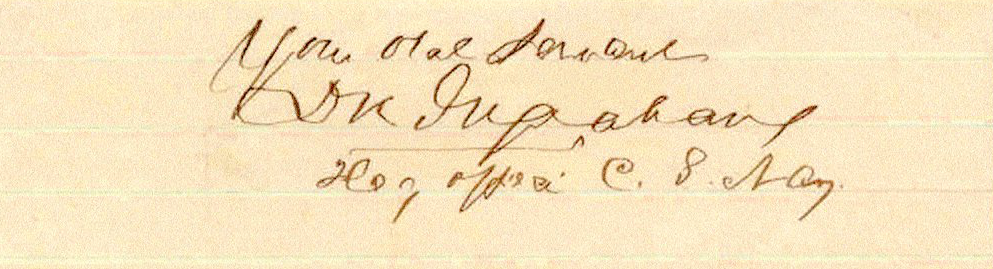 Your obt Servant
D N Ingraham
Flag offr C. S. Navy.